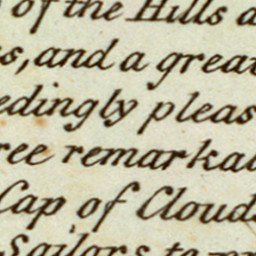 of the Hills a
s, and a great
edingly pleas
ree remarka
Cap, of Clouds
Sailors